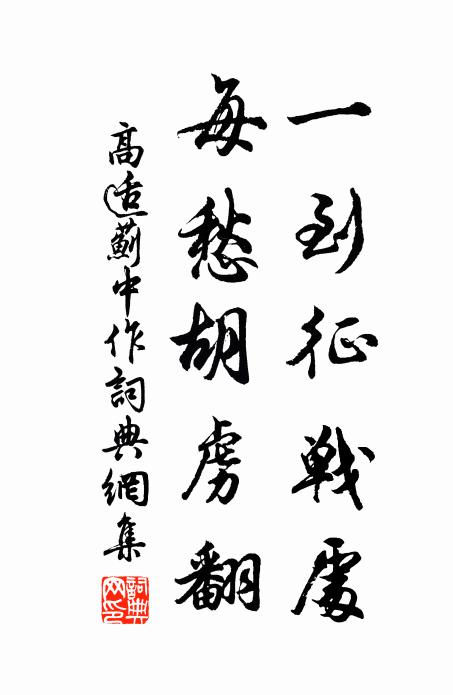 一到征戦處
每愁胡虜翻
高適薊中作詞典網集
詞典網印